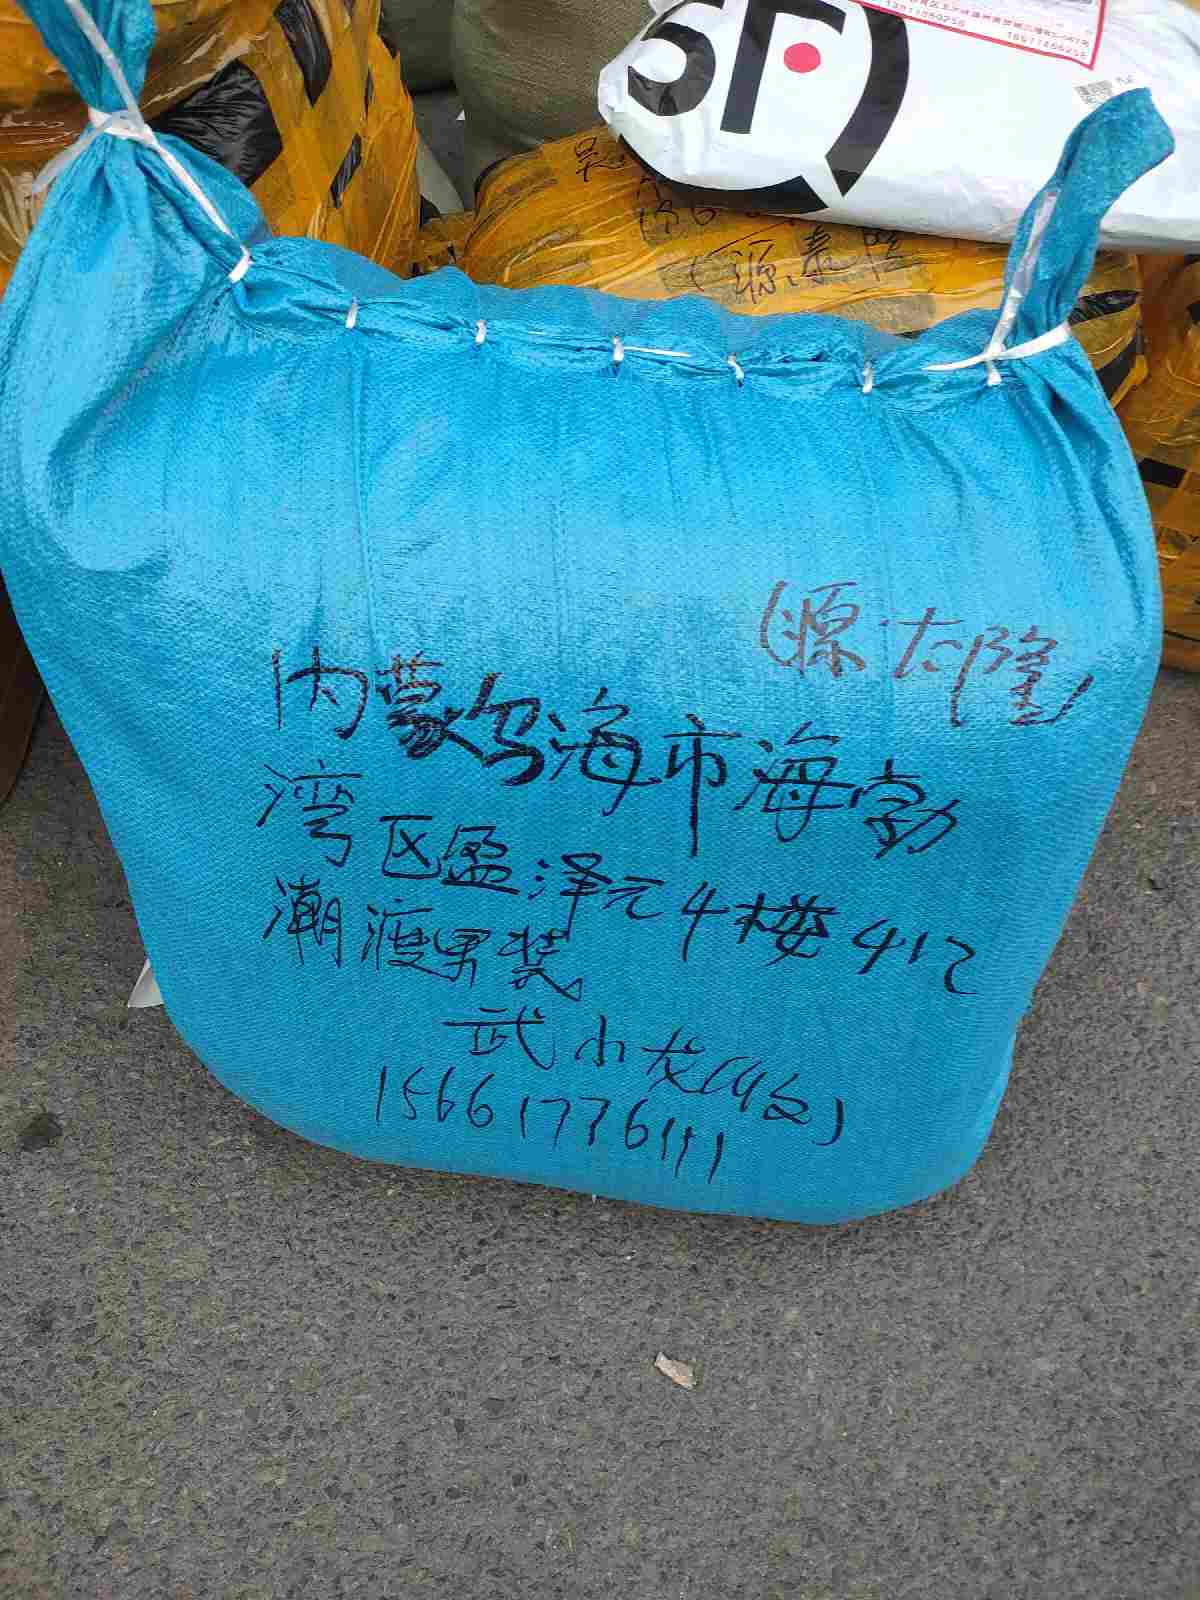 13811860258
18911866258
SF
源泰隆
(源太隆)
内蒙乌海市海勃
湾区盈泽元4楼412
潮渡男装
武小龙(收)
15661776111